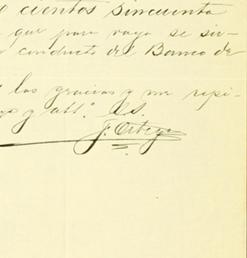 cientos cincuenta
que para pago se sir-
conducto del Banco de
las gracias y me repi-
y att.° SS.
F. Ortega